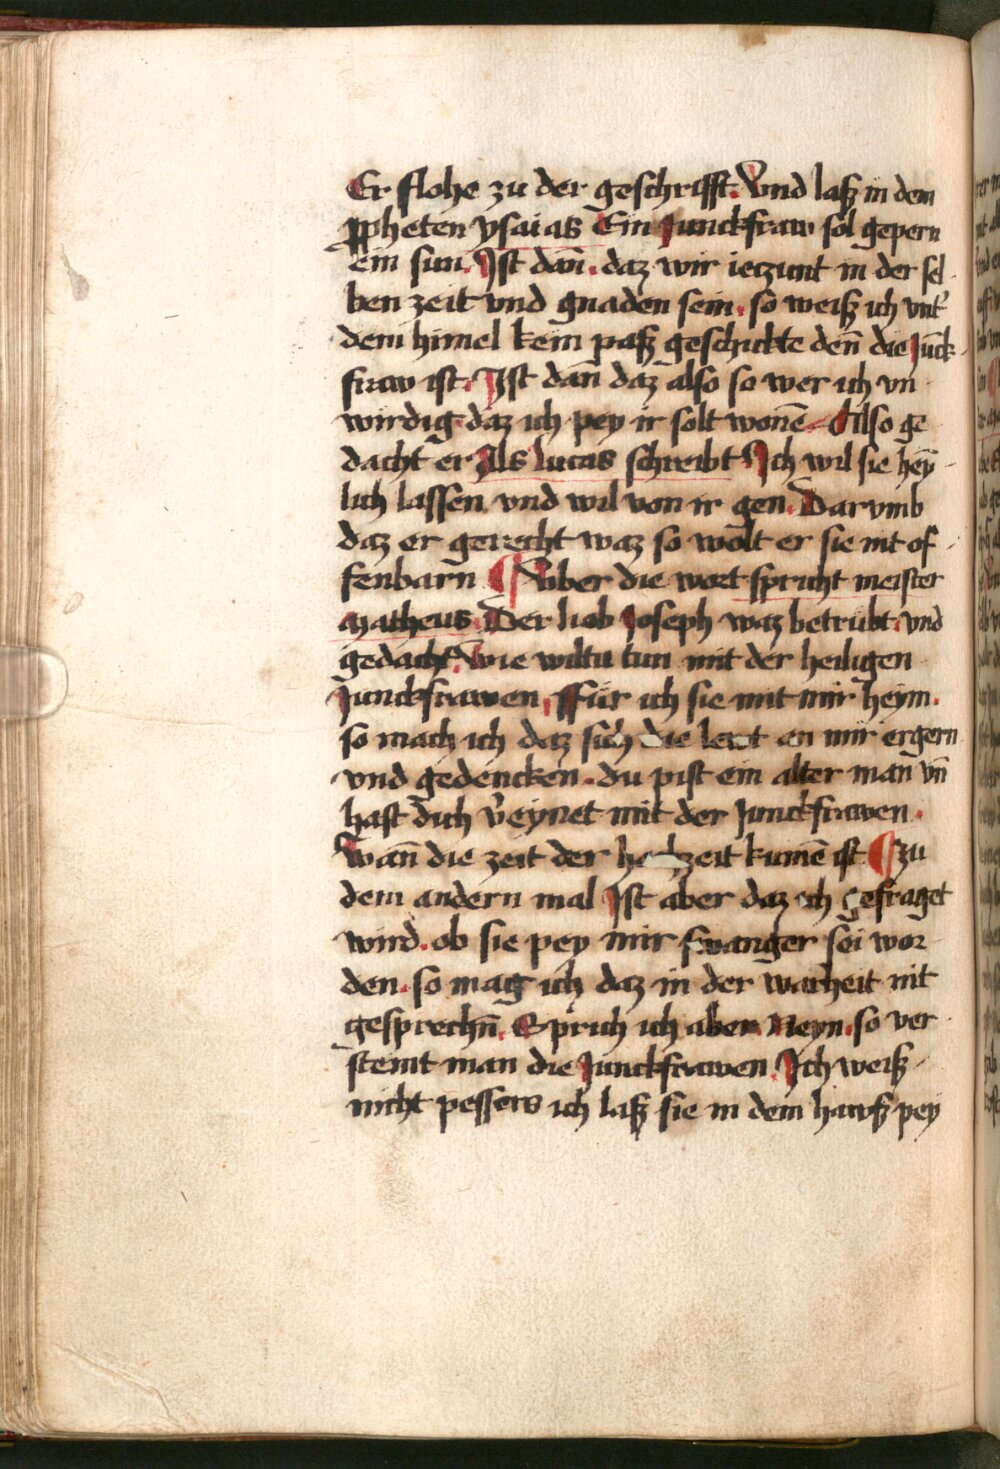 Er flohe zu der geschrifft. Vnd laß in dem
ppheten ysaias Ein Junckfraw sol gepern
ein sun. Ist dañ. daz wir ieczunt in der sel
ben zeit vnd gnaden sein. so weiß ich vnt'
dem himel kein paß geschickte den̄ die Jūck
fraw ist. Ist dan̄ daz also so wer ich vn
wirdig daz ich pey ir solt wonē Also ge
dacht er Als lucas schreibt Ich wil sie hey
lich lassen vnd wil von ir gen. Darvmb
daz er gerecht waz so wolt er sie nit of
fenbarn ¶ Vber die wort spricht meister
Matheus. Der lieb Joseph waz betrubt. vnd
gedacht. wie wiltu tun mit der heiligen
Junckfrawen, ffür ich sie mit mir heym.
so mach ich daz sich die lewt an mir ergern
vnd gedencken. du pist ein alter man vn̄
hast dich v'eynet mit der Junckfrawen.
Wan̄ die zeit der hochzeit kumē ist ¶ zu
dem andern mal Ist aber daz ich gefraget
wird. ob sie pey mir swanger sei wor
den. so mag ich daz in der warheit nit
gesprechn̄. Sprich ich aber Neyn. so ver
steint man die Junckfrawen. Ich weiß
nicht pessers ich laß sie in dem hawß pey